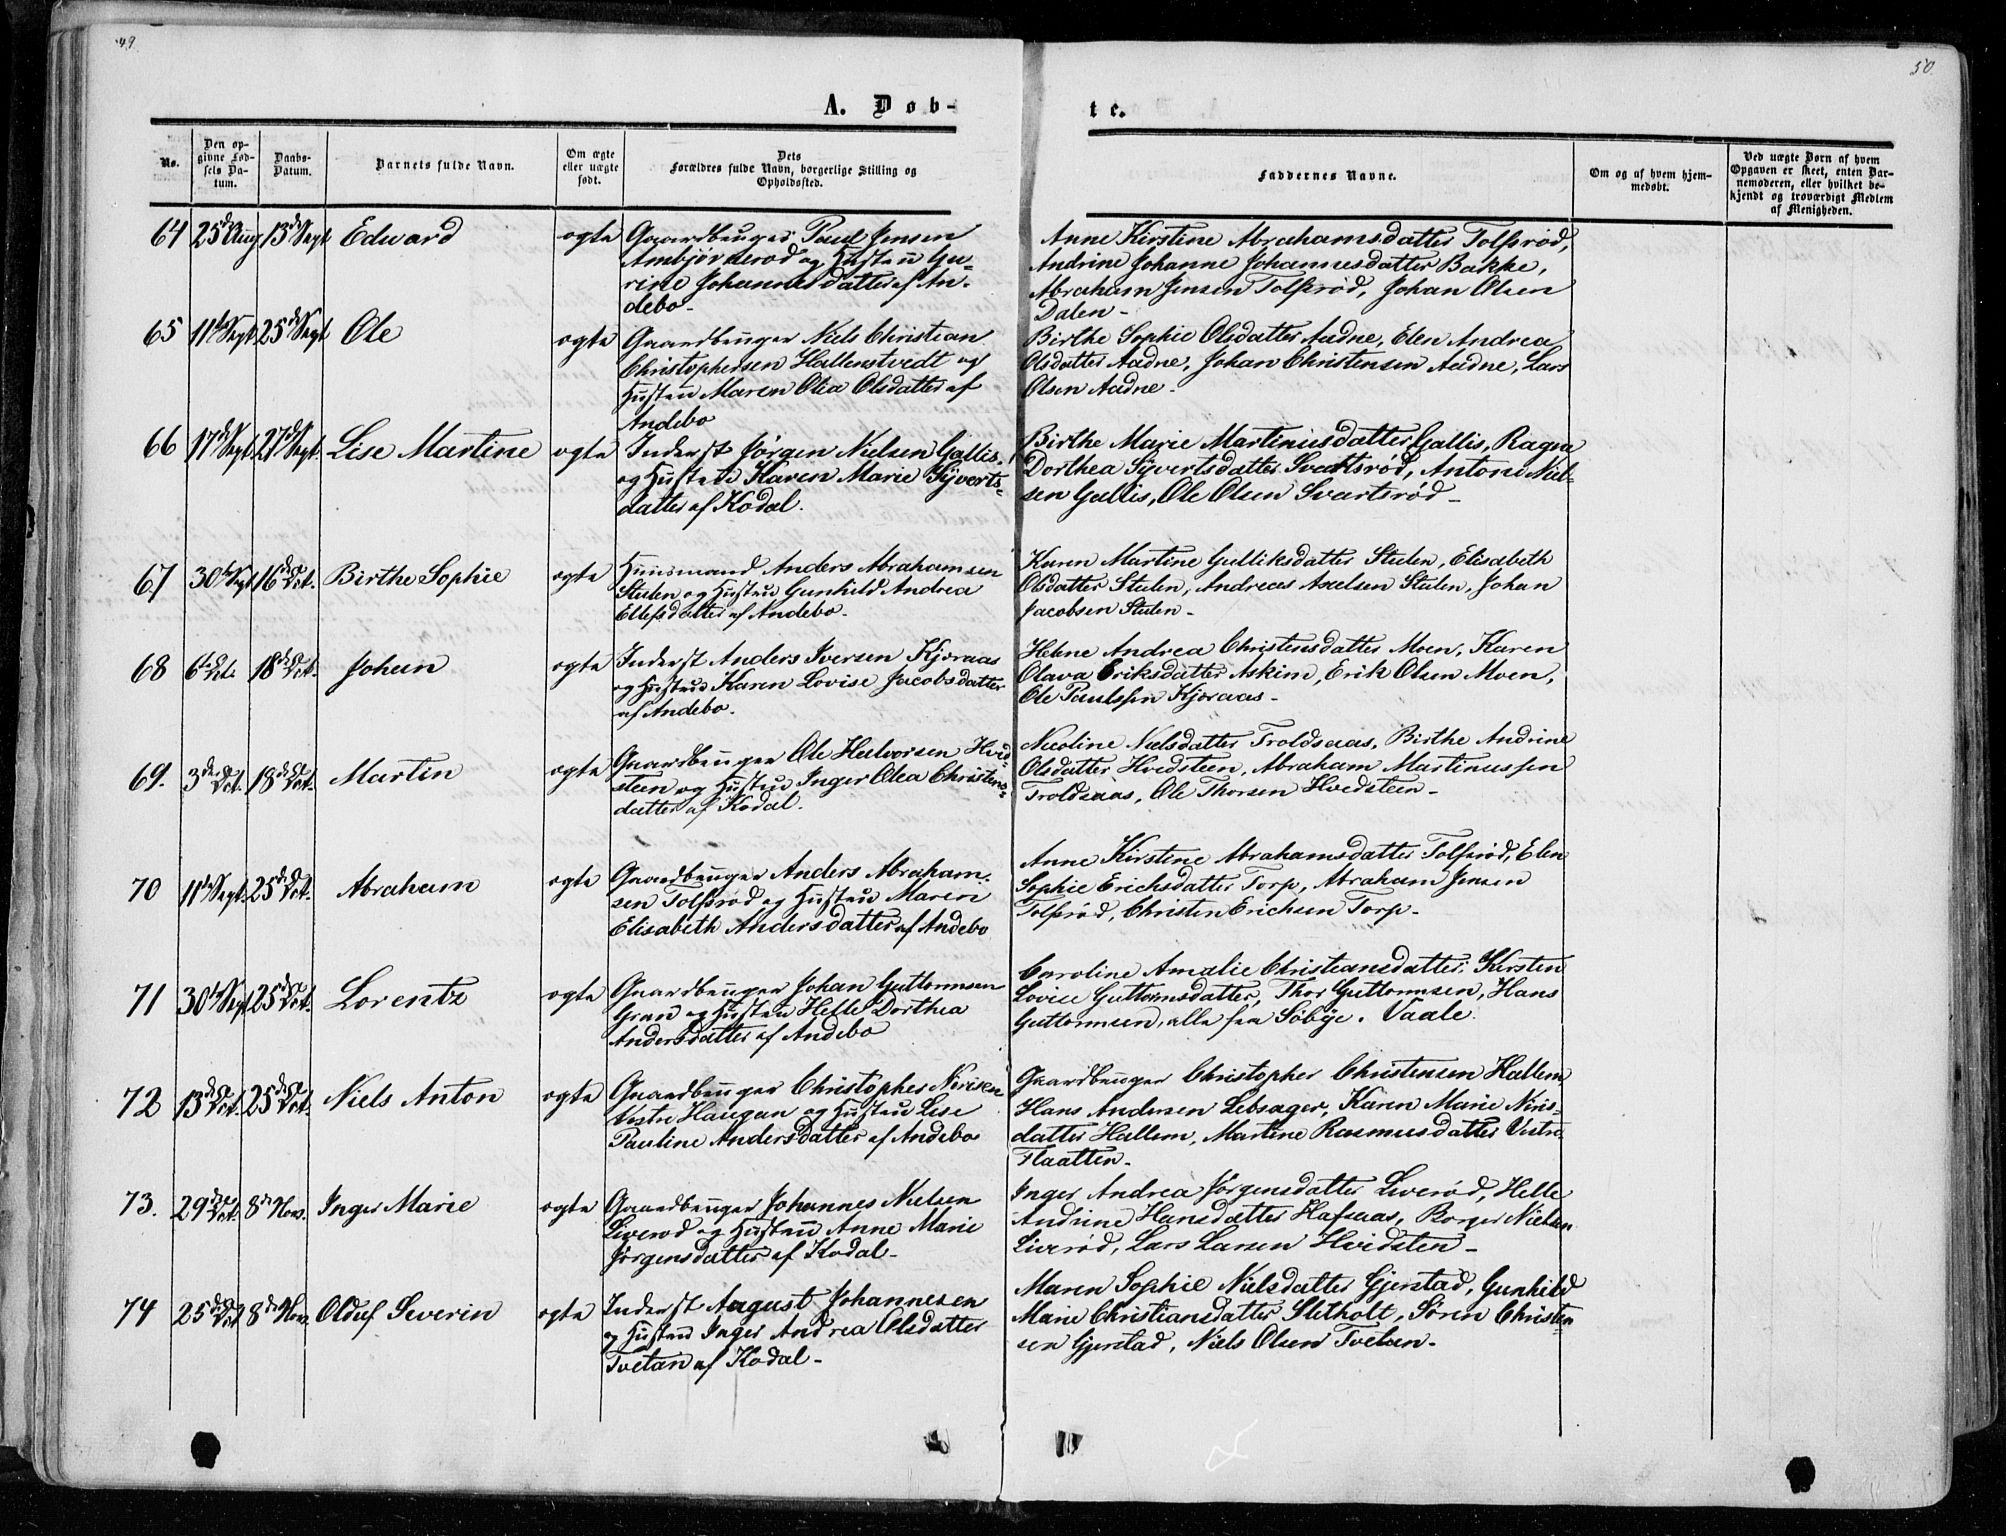 49
50
A. Døb-
te.
No.
Den op-
givne Fød-
sels Da-
tum.
Daabs-
Datum.
Barnets fulde Navn.
Om ægte
eller uægte
født.
Dets
Forældres fulde Navn, borgerlige Stilling og
Opholdssted.
Faddernes Navne.
Om og af hvem hjem-
medøbt.
Ved uægte Børn af hvem
Opgaven er skeet, enten Bar-
nemoderen, eller hvilket be-
kjendt og troværdigt Medlem
af Menigheden.
64 25de Aug 13de Sept Edvard ægte Gaardbruger Paul Jensen
Ambjørnerød og Hustru Gu-
rine Johannesdatter af An-
debo-
Anne Kirstine Abrahamsdatter Tolfsrød,
Andrine Johanne Johannesdatter Bakke,
Abraham Jensen Tolfsrød, Johan Olsen
Dalen-
65 11te Sept. 25de Sept Ole ægte Gaardbruger Niels Christian
Christophersen Hallenstvedt og
Hustru Maren Olea Olsdatter af
Andebo
Birthe Sophie Olsdatter Aadne, Elen Andrea
Olsdatter Aadne, Johan Christensen Aadne, Lars
Olsen Aadne-
66 17de Sept. 27de Sept. Lise Martine ægte Inderst Jørgen Nielsen Gallis,
og Hustru Karen Marie Syverts-
datter af Kodal.
Birthe Marie Martiniusdatter Gallis, Ragna
Dorthea Syvertsdatter Svartsrød, Anton Niel-
sen Gallis, Ole Olsen Svartsrød-
67 30te Sept. 16de Oct. Birthe Sophie ægte Huusmand Anders Abrahamsen
Stulen og Hustru Gunhild Andrea
Ellefsdatter af Andebo-
Karen Martine Gulliksdatter Stulen, Elisabeth
Olsdatter Stulen, Andreas Axelsen Stulen, Johan
Jacobsen Stulen-
68 6te Oct. 18de Oct. Johan ægte Inderst Anders Iversen Kjøraas
og Hustru Karen Lovise Jacobsdatter
af Andebo.
Helene Andrea Christensdatter Moen, Karen
Olava Eriksdatter Askim, Erik Olsen Moen,
Ole Paulssen Kjøraas-
69. 3de Oct. 18de Oct. Martin ægte Gaardbruger Ole Halvorsen Hvid-
steen og Hustru Inger Olea Christens-
datter af Kodal.
Nicoline Nielsdatter Troldsaas, Birthe Andrine
Olsdatter Hvidsteen, Abraham Martinussen
Troldsaas, Ole Thorsen Hvidsteen-
70 11te Sept. 25de Oct. Abraham ægte Gaardbruger Anders Abraham-
sen Tolfsrød og Hustru Maren
Elisabeth Andersdatter af Andebo
Anne Kirstine Abrahamsdatter Tolfsrød, Elen
Sophie Erichsdatter Torp, Abraham Jensen
Tolfsrød, Christen Erichsen Torp-
71 30te Sept 25de Oct. Lorentz ægte Gaardbruger Johan Guttormsen
Gran og Hustru Helle Dorthea
Andersdatter af Andebo
Caroline Amalie Christiansdatter, Kirsten
Lovise Guttormsdatter, Thor Guttormsen, Hans
Guttormsen, alle fra Søbye. Vaale.
72 13de Oct. 25de Oct. Niels Anton ægte Gaardbruger Christopher Nirisen
Vestre Haugan og Hustru Lise
Pauline Andersdatter af Andebo
Gaardbruger Christopher Christensen Hallem,
Hans Andersen Lebsager, Karen Marie Niris-
datter Hallem, Martine Rasmusdatter Vestre
Flaatten-
73. 29de Oct. 8de Nov. Inger Marie ægte Gaardbruger Johannes Nielsen
Liverød og Hustru Anne Marie
Jørgensdatter af Kodal-
Inger Andrea Jørgensdatter Liverød, Helle
Andrine Hansdatter Hafsaas, Borger Nielsen
Liverød, Lars Larsen Hvidsten-
74 25de Oct 8de Nov. Oluf Severin ægte Inderst August Johannesen
og Hustru Inger Andrea Olsdatter
Tvetan af Kodal-
Maren Sophie Nielsdatter Gjerstad, Gunhild
Marie Christiansdatter Sletholt, Søren Christen-
sen Gjerstad, Niels Olsen Tvetan-